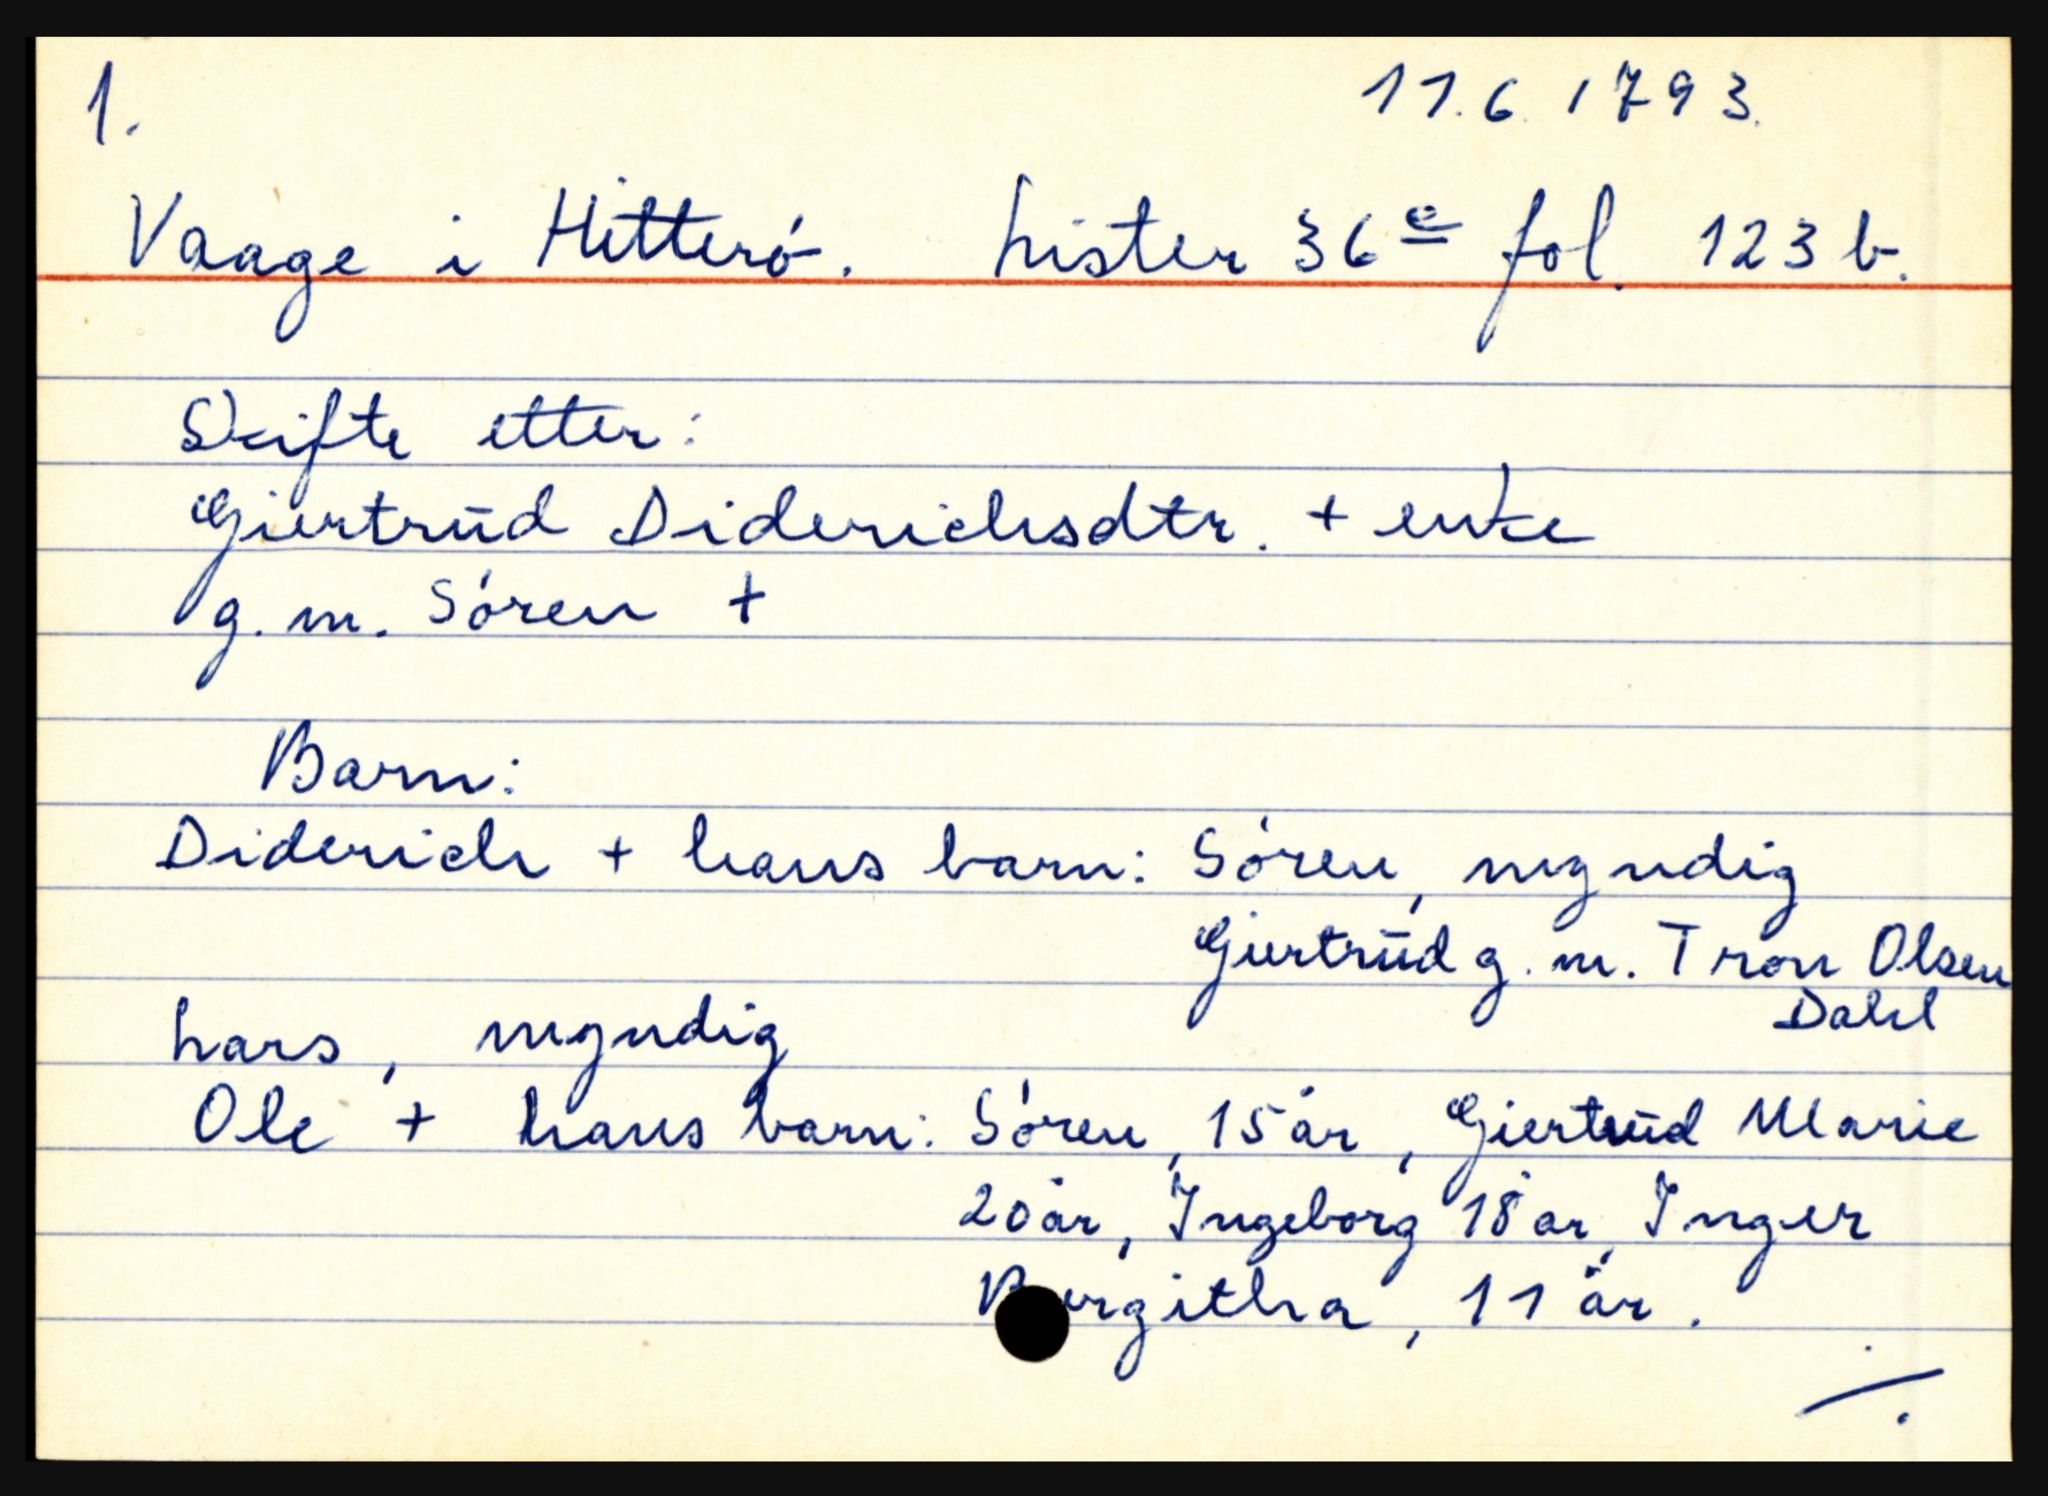 1. 11.6.1793.
Vaage i Hitterö. Lister 36e fol. 123 b.
Skifte etter:
Giertrud Diderichsdtr. + enke
g.m. Sören +
Barn:
Diderich + hans barn: Sören, myndig
Giertrud g.m. Tron Olsen
Dahl
Lars, myndig
Ole + hans barn: Sören, 15 år, Giertrud Marie
20 år, Ingeborg 18 år, Inger
11 år.
./.